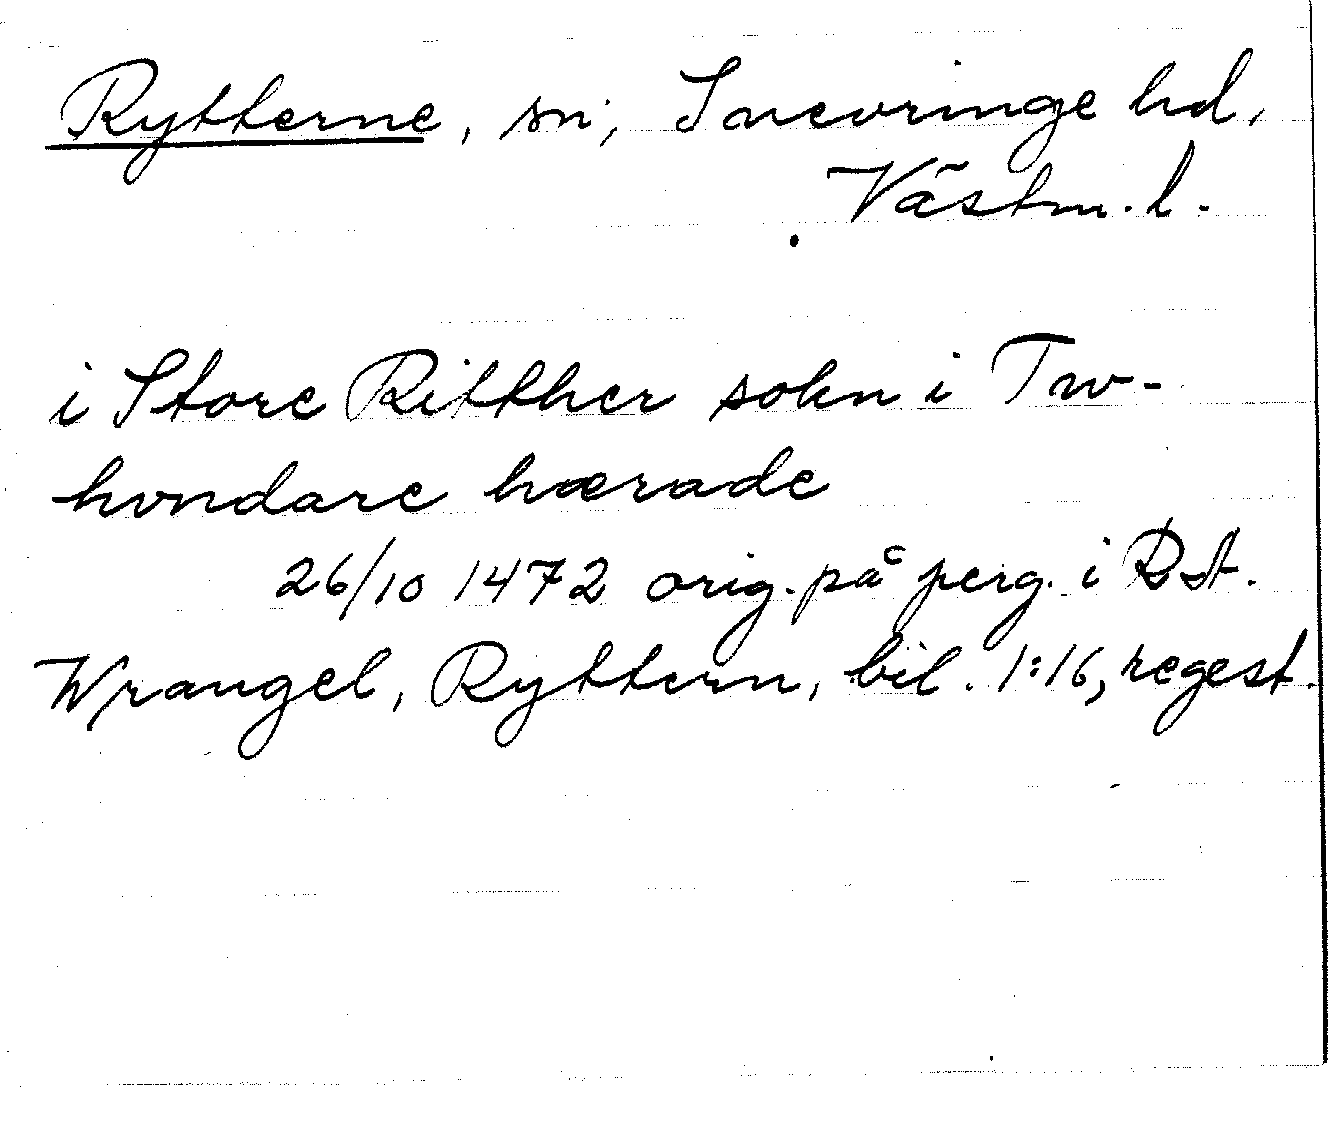 Rytterne, sn; Snevringe hd,
Västm. l.
i Store Ritther sokn i Tw-
hvndare hærade
26/10 1472 orig. på perg. i Rst.
Wrangel, Ryttern, bil. 1:16, regest.